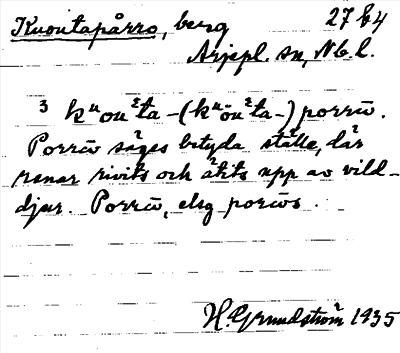 27 b4
Kuoutapårro, berg
Arjepl. sn, Nb. l.
3 kᵘouᵋta-(kᵘöuᵋta-)porrω̄.
Porrω̄ säges betyda ställe, där
renar rivits och ätits upp av vild-
djur. Porrω̄, elsg porω̄s.
H. Grundström 1935